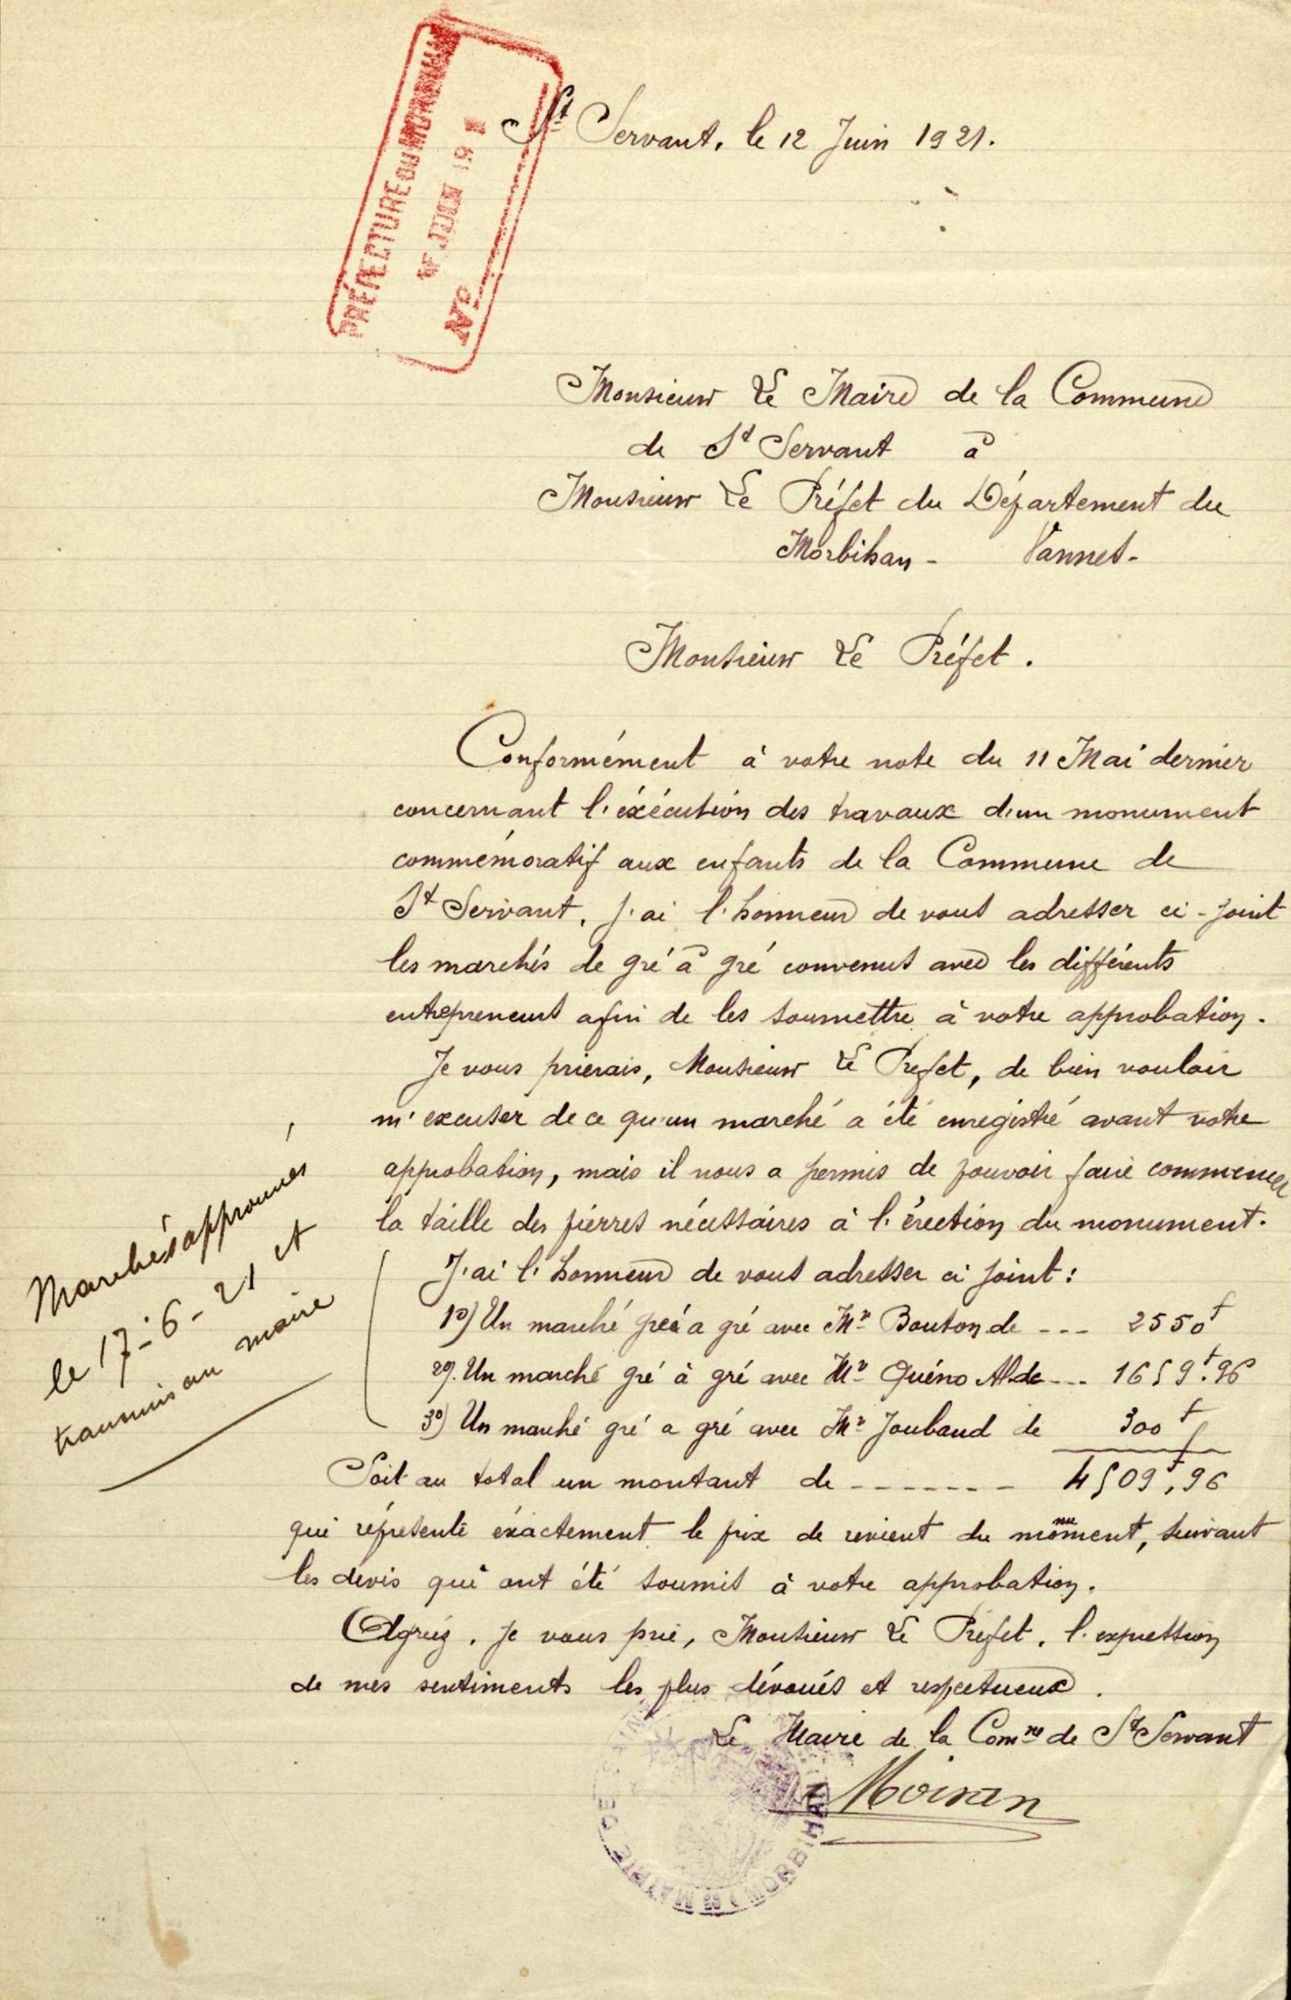 PRÉFECTURE DU MORBIHAN
JUIN 19
N°
St Servant, le 12 Juin 1921.
Monsieur Le Maire de la Commune
de St Servant à
Monsieur Le Préfet du Département du
Morbihan - Vannes -
Monsieur Le Préfet.
Conformément à votre note du 11 Mai dernier
concernant l'éxécution des travaux d'un monument
commémoratif aux enfants de la Commune de
St Servant, j'ai l'honneur de vous adresser ci-joint
les marchés de gré à gré convenus avec les différents
entrepreneurs afin de les soumettre à votre approbation.
Je vous prierais, Monsieur Le Prefet, de bien vouloir
m'excuser de ce qu'un marché a été enregistré avant votre
approbation, mais il nous a permis de pouvoir faire commencer
la taille des pierres nécessaires à l'érection du monument.
J'ai l'honneur de vous adresser ci joint :
1°) Un marché gré a gré avec Mr Bouton de --- 2550f
2°). Un marché gré à gré avec Mr Quéno Al. de --- 1659f.96
3°) Un marché gré a gré avec Mr Joubaud de 300f
Soit au total un montant de ------- 4509f,96
qui réprésente éxactement le prix de revient du monument, suivant
les devis qui ont été soumis à votre approbation.
Agréez, je vous prie, Monsieur Le Préfet, l'expression
de mes sentiments les plus dévoués et respectueux.
Le Maire de la Comne de St Servant
Moisan
Marchés approuvés
le 17-6-21 et
transmis au maire
MAIRIE DE SAINT
(MORBIHAN)